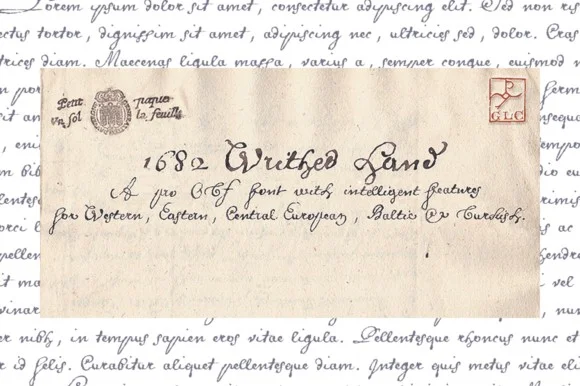 Lorem ipsum dolor sit amet, consectetur adipiscing elit. Sed non ris
ectus tortor, dignissim sit amet, adipiscing nec, ultricies sed, dolor. Cras
trices diam. Maecenas ligula massa, varius a, semper congue, euismod n
Petit
vn sol la feuille
GLC
1682 Writhed Hand
A pro OTF font with intelligent features
for Western, Eastern, Central European, Baltic & Turkish.
er nibh, in tempus sapien eros vitae ligula. Pellentesque rhoncus nunc et
r id felis. Curabitur aliquet pellentesque diam. Integer quis metus vitae eli